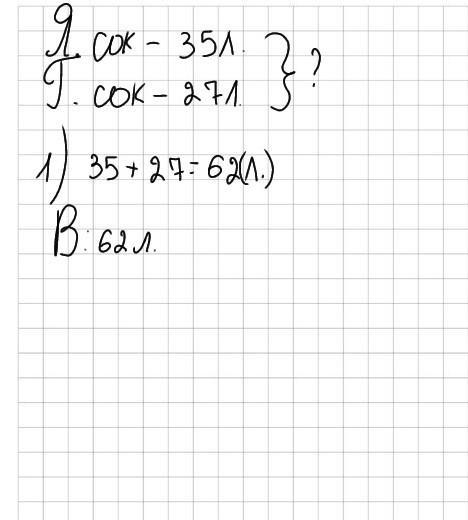 Я. сок - 35л.
Г. сок - 27л. } ?
1) 35 + 27 = 62(л.)
В: 62 л.